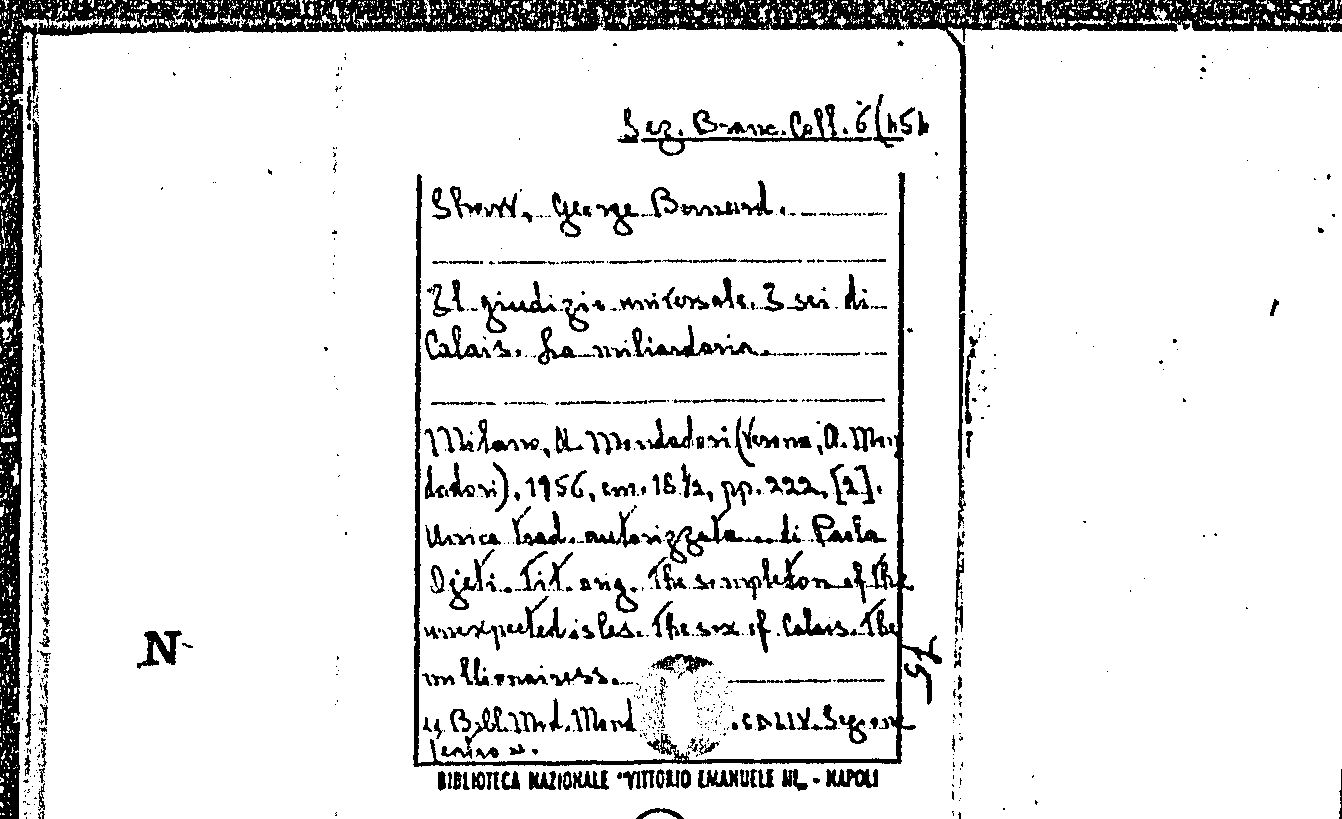 Sez. Branc. Coll. 6(454
Shaw, George Bernard.
Il giudizio universale. I sei di
Calais. La miliardaria.
Milano, A. Mondadori (Verona, A. Mon
dadori), 1956, cm. 18½, pp. 222, [2].
Unica trad. autorizzata di Paola
Ojetti. Tit. orig. The simpleton of the
unexpected isles. The six of Calais. The
millionairess.
Bibl. Mod. Mond .CDLIV. Segue
N
BIBLIOTECA NAZIONALE "VITTORIO EMANUELE III„ - NAPOLI